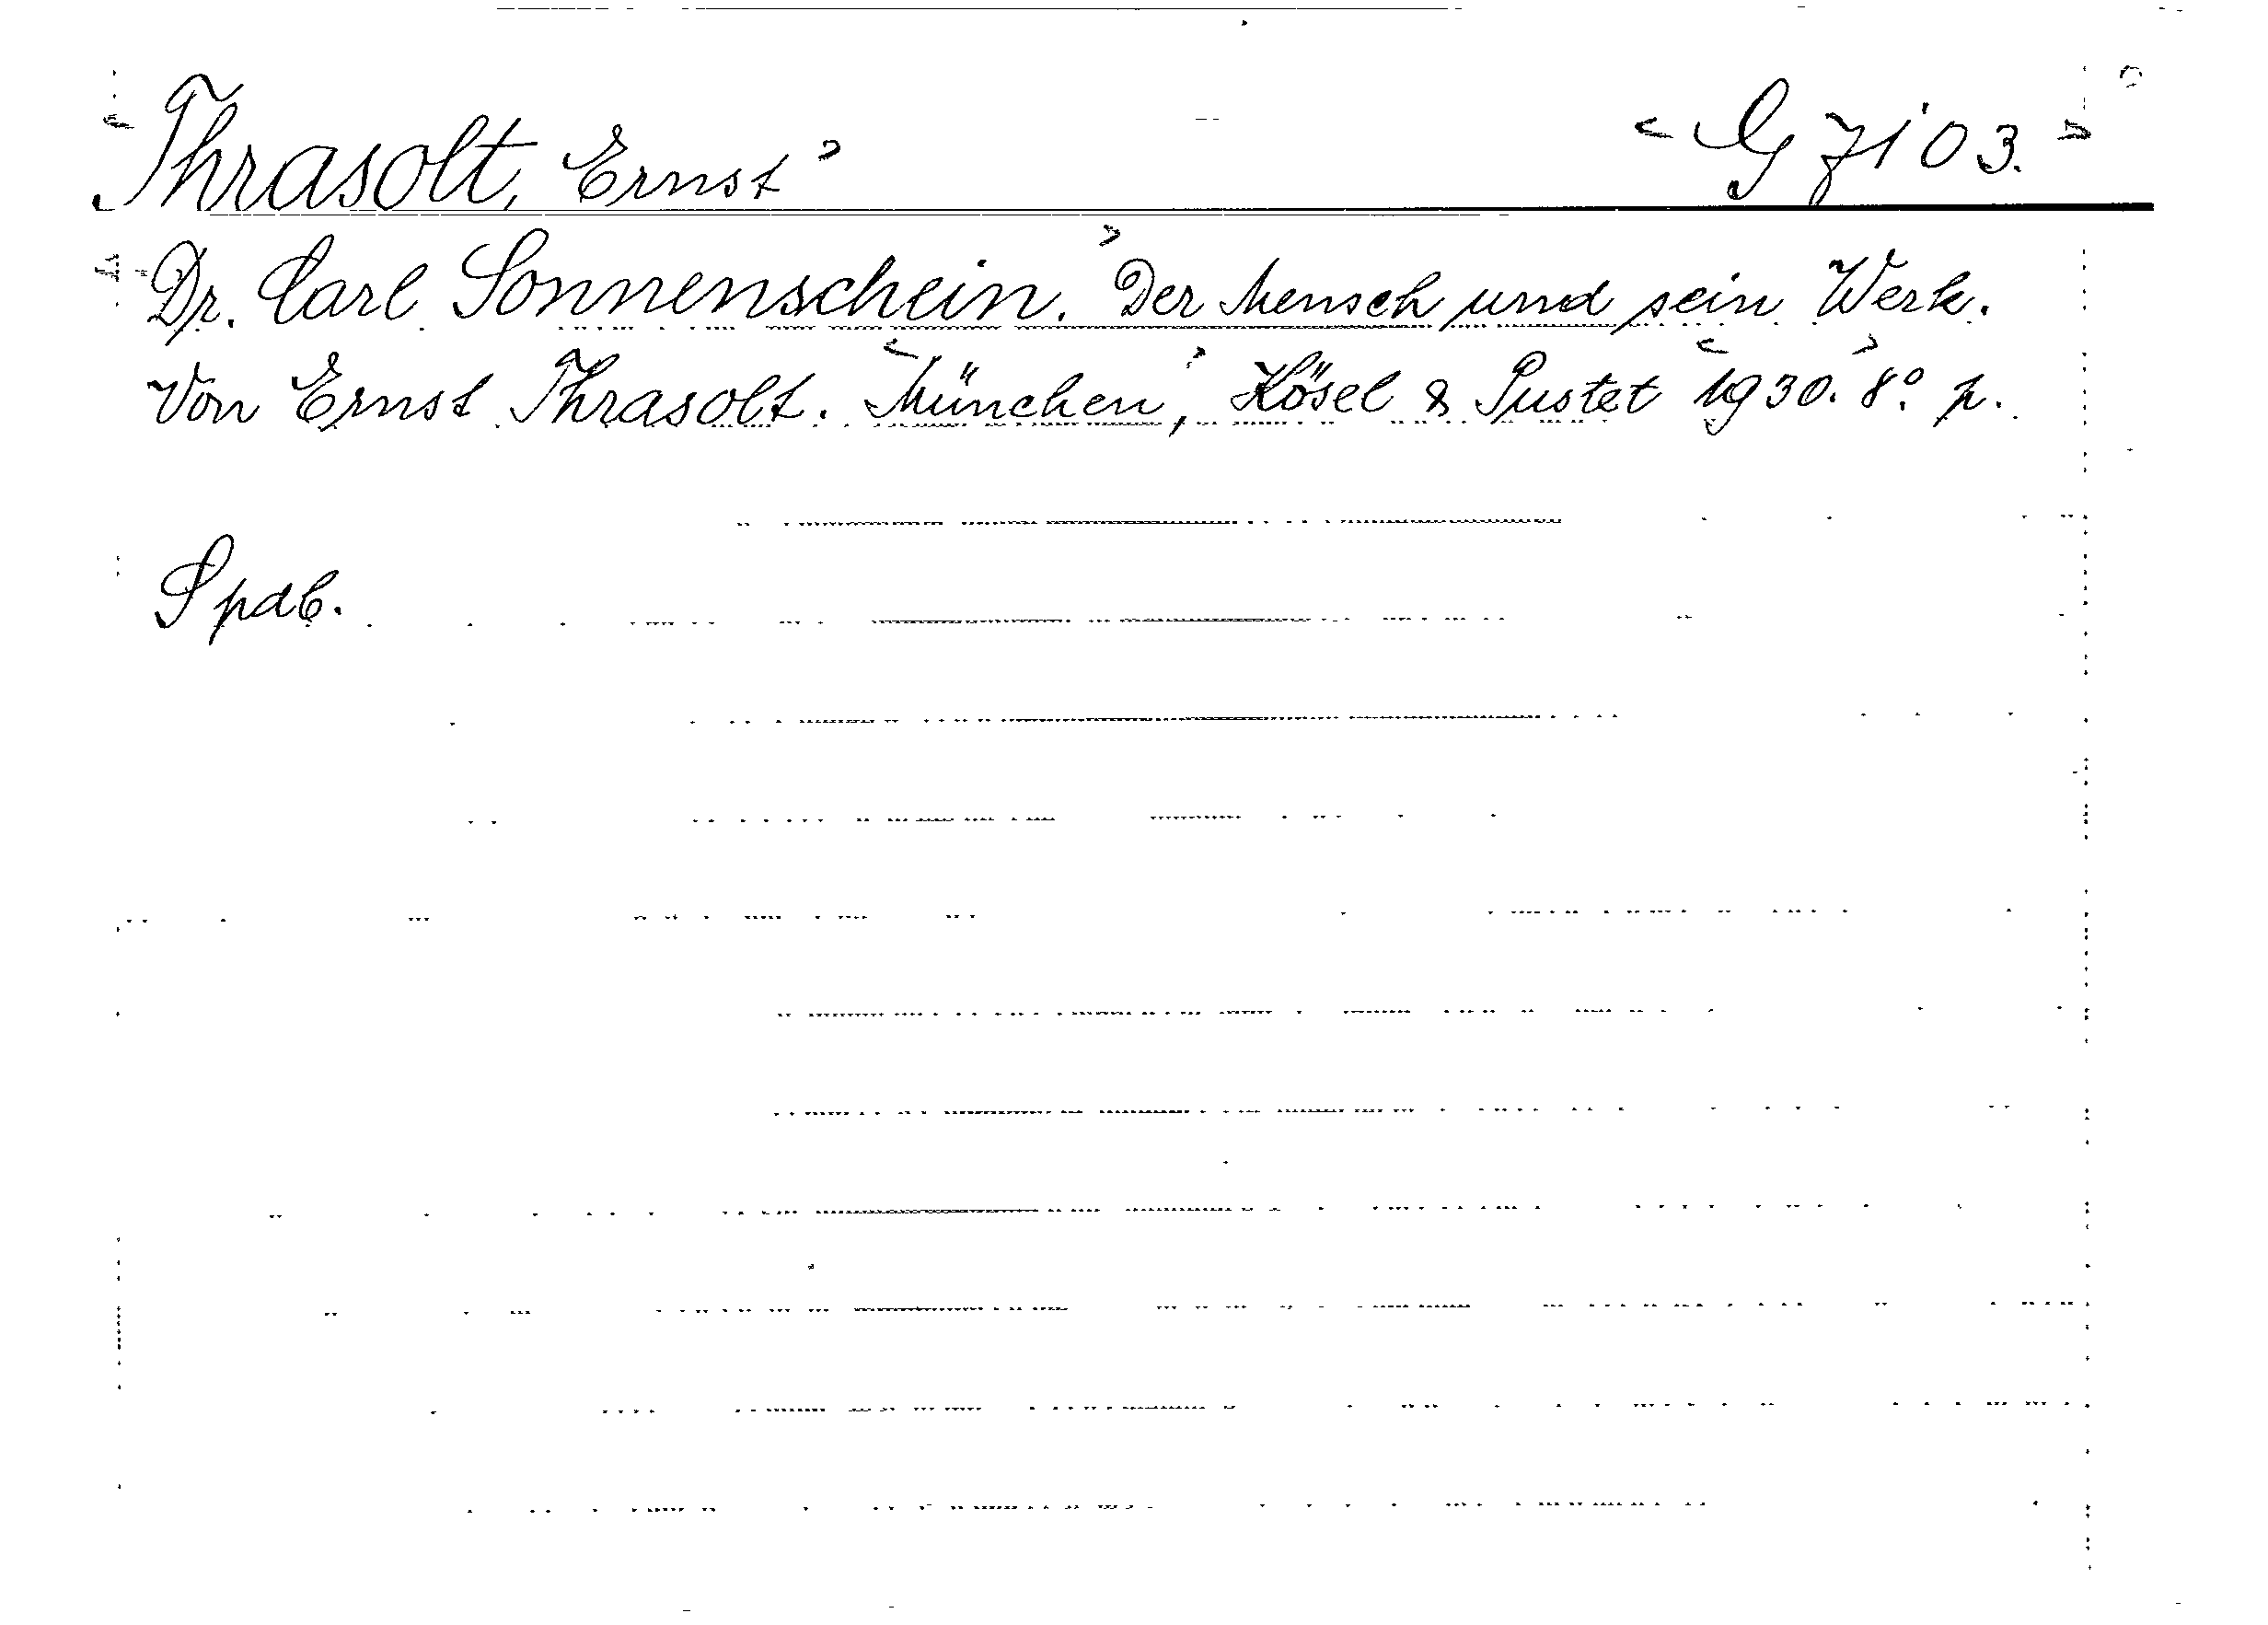 <Thrasolt, Ernst> <G 7103.>
<Dr. Carl Sonnenschein.> Der Mensch und sein Werk.
Von Ernst Thrasolt. <München,> Kösel & Pustet <1930.> 8° p.
Spdb.